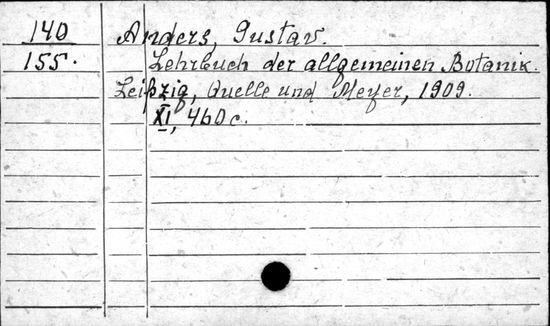 140 Anders, Gustav.
155. Lehrbuch der allgemeinen Botanik.
Leipzig, Quelle und Meyer, 1909.
XI, 460 c.